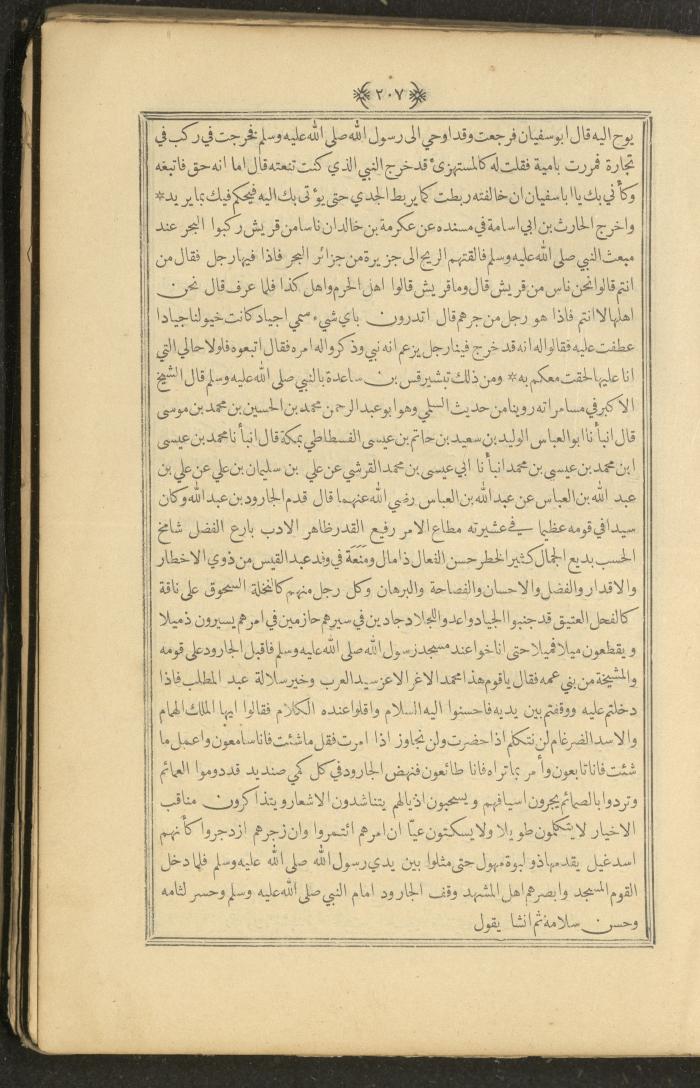 ٢٠٧
يوح اليه قال ابو سفيان فرجعت وقد اوحي الى رسول الله صلى الله عليه وسلم فخرجت في ركب في
تجارة فمررت بامية فقلت له كالمستهزئ قد خرج النبي الذي كنت تنعته قال اما انه حق فاتبعه
وكأني بك يا ابا سفيان ان خالفته ربطت كما يربط الجدي حتى يؤتى بك اليه فيحكم فيك بما يريد *
واخرج الحارث بن ابي اسامة في مسنده عن عكرمة بن خالد ان ناسا من قريش ركبوا البحر عند
مبعث النبي صلى الله عليه وسلم فالقتهم الريح الى جزيرة من جزائر البحر فاذا فيها رجل فقال من
انتم قالوا نحن ناس من قريش قال وما قريش قالوا اهل الحرم واهل كذا فلما عرف قال نحن
اهلها لا انتم فاذا هو رجل من جرهم قال اتدرون باي شيء سمي اجياد كانت خيولنا جيادا
عطفت عليه فقالوا له انه قد خرج فينا رجل يزعم انه نبي وذكروا له امره فقال اتبعوه فلولا حالي التي
انا عليها لحقت معكم به * ومن ذلك تبشير قس بن ساعدة بالنبي صلى الله عليه وسلم قال الشيخ
الاكبر في مسامراته روينا من حديث السلمي وهو ابو عبد الرحمن محمد بن الحسين بن محمد بن موسى
قال انبأنا ابو العباس الوليد بن سعيد بن حاتم بن عيسى الفسطاطي بمكة قال انبأنا محمد بن عيسى
ابن محمد بن عيسى بن محمد انبأنا ابي عيسى بن محمد القرشي عن علي بن سليمان بن علي عن علي بن
عبد الله بن العباس عن عبد الله بن العباس رضي الله عنهما قال قدم الجارود بن عبد الله وكان
سيدا في قومه عظيما في عشيرته مطاع الامر رفيع القدر ظاهر الادب بارع الفضل شامخ
الحسب بديع الجمال كثير الخطر حسن الفعال ذا مال ومَنَعَة في وفد عبد القيس من ذوي الاخطار
والاقدار والفضل والاحسان والفصاحة والبرهان وكل رجل منهم كالنخلة السحوق على ناقة
كالفحل العتيق قد جنبوا الجياد واعدوا للجلاد جادين في سيرهم حازمين في امرهم يسيرون ذميلا
ويقطعون ميلا فميلا حتى اناخوا عند مسجد رسول الله صلى الله عليه وسلم فاقبل الجارود على قومه
والمشيخة من بني عمه فقال يا قوم هذا محمد الاغر الاعز سيد العرب وخير سلالة عبد المطلب فاذا
دخلتم عليه ووقفتم بين يديه فاحسنوا اليه السلام واقلوا عنده الكلام فقالوا ايها الملك الهمام
والاسد الضرغام لن نتكلم اذا حضرت ولن نجاوز اذا امرت فقل ما شئت فانا سامعون واعمل ما
شئت فانا تابعون وأمر بما تراه فانا طائعون فنهض الجارود في كل كمي صنديد قد دوموا العمائم
وتردوا بالصمائم يجرون اسيافهم ويسحبون اذيالهم يتناشدون الاشعار ويتذاكرون مناقب
الاخيار لا يتكلمون طويلا ولا يسكتون عيّا ان امرهم ائتمروا وان زجرهم ازدجروا كأنهم
اسد غيل يقدمها ذو لبوة مهول حتى مثلوا بين يدي رسول الله صلى الله عليه وسلم فلما دخل
القوم المسجد وابصرهم اهل المشهد وقف الجارود امام النبي صلى الله عليه وسلم وحسر لثامه
وحسن سلامه ثم انشا يقول